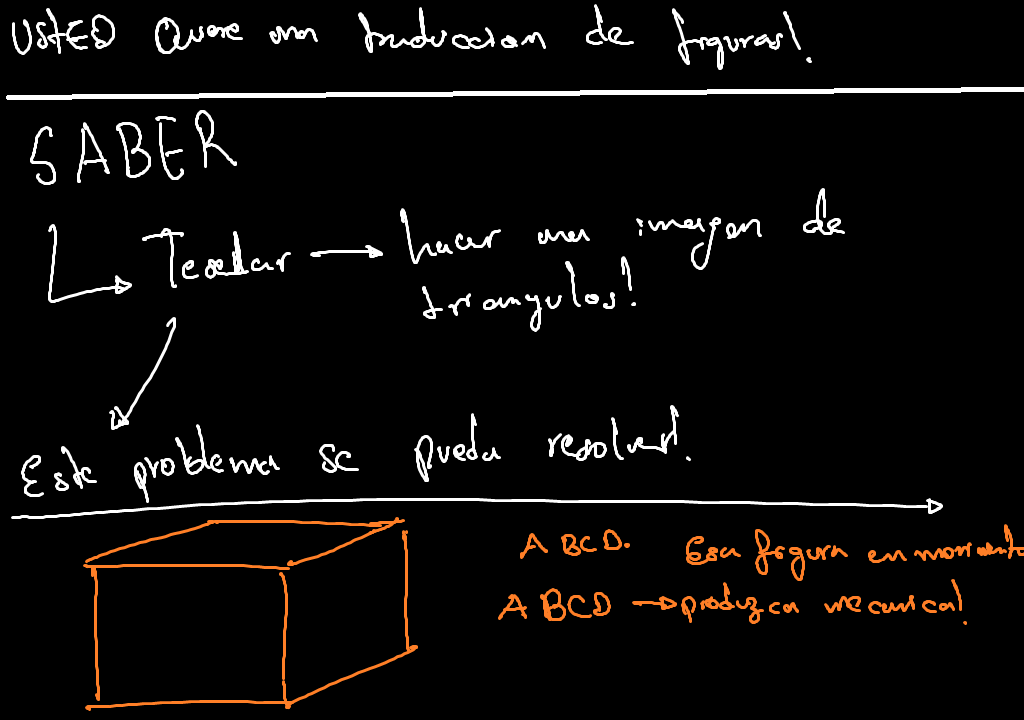 USTED Quere una traduccion de figuras!.
SABER
Teselar → hacer una imagen de
triangulos!
Este problema se pueda resolver!.
A BCD. Esa figura en movimiento
A BCD → produzca mecanica!.